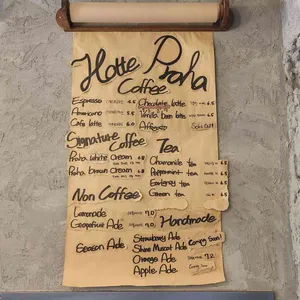 Hotte Praha
Coffee
Espresso 4.5
Americano 5.5
Cafe latte 6.0
Chocolate latte 6.5
Vanilla bean latte 6.5
Affogato Sold Out
Signature Coffee
Praha White Cream 6.8
Praha Brown Cream 6.8
Tea
Chamomile tea 6.5
Peppermint tea 6.5
Earlgrey tea 6.5
Green tea 6.5
Non Coffee
Lemonade 7.0
Grapefruit Ade 7.0
Season Ade
Handmade
Strawberry Ade
Shine Muscat Ade (Coming Soon)
Orange Ade 7.2
Apple Ade